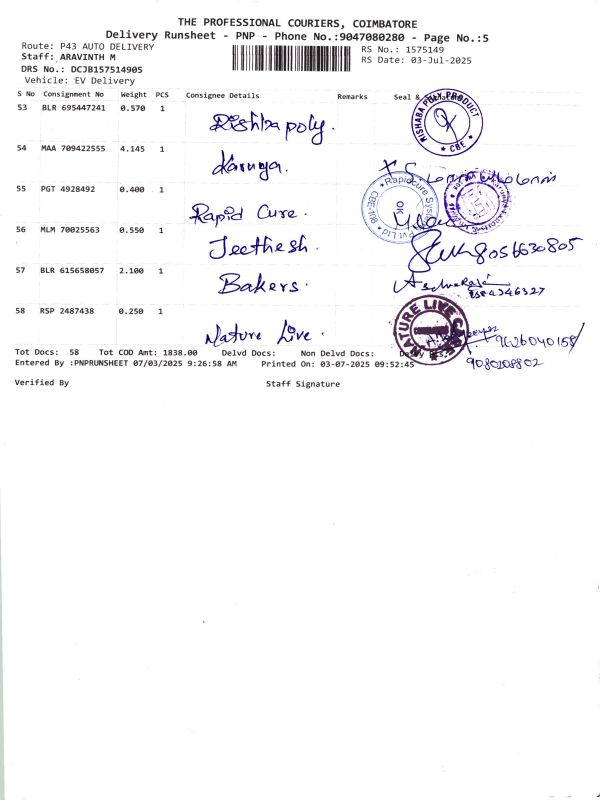 THE PROFESSIONAL COURIERS, COIMBATORE
Delivery Runsheet - PNP - Phone No.:9047080280 - Page No.:5
Route: P43 AUTO DELIVERY
RS No.: 1575149
Staff: ARAVINTH M
RS Date: 03-Jul-2025
DRS No.: DCJB157514905
Vehicle: EV Delivery
S No Consignment No Weight PCS Consignee Details Remarks Seal &
53 BLR 695447241 0.570 1
Rishba poly.
RISHABA POLY PRODUCT * CBE *
54 MAA 709422555 4.145 1
Karunya.
55 PGT 4928492 0.400 1
Rapid Cure.
Rapidcure Pvt Ltd * CBE-
OK
56 MLM 70025563 0.550 1
Jeethesh.
8056630805
57 BLR 615658057 2.100 1
Bakers.
58 RSP 2487438 0.250 1
Nature Live.
NATURE LIVE CARE
9626040158
9080208802
Tot Docs: 58 Tot COD Amt: 1838.00 Delvd Docs: Non Delvd Docs:
Entered By :PNPRUNSHEET 07/03/2025 9:26:58 AM Printed On: 03-07-2025 09:52:45
Verified By Staff Signature